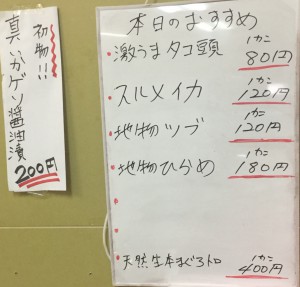 初物!!
真いかゲソ醤油漬
200円
本日のおすすめ
激うまタコ頭 1カン 80円
スルメイカ 1カン 120円
地物ツブ 1カン 120円
地物ひらめ 1カン 180円
天然生本まぐろトロ 1カン 400円